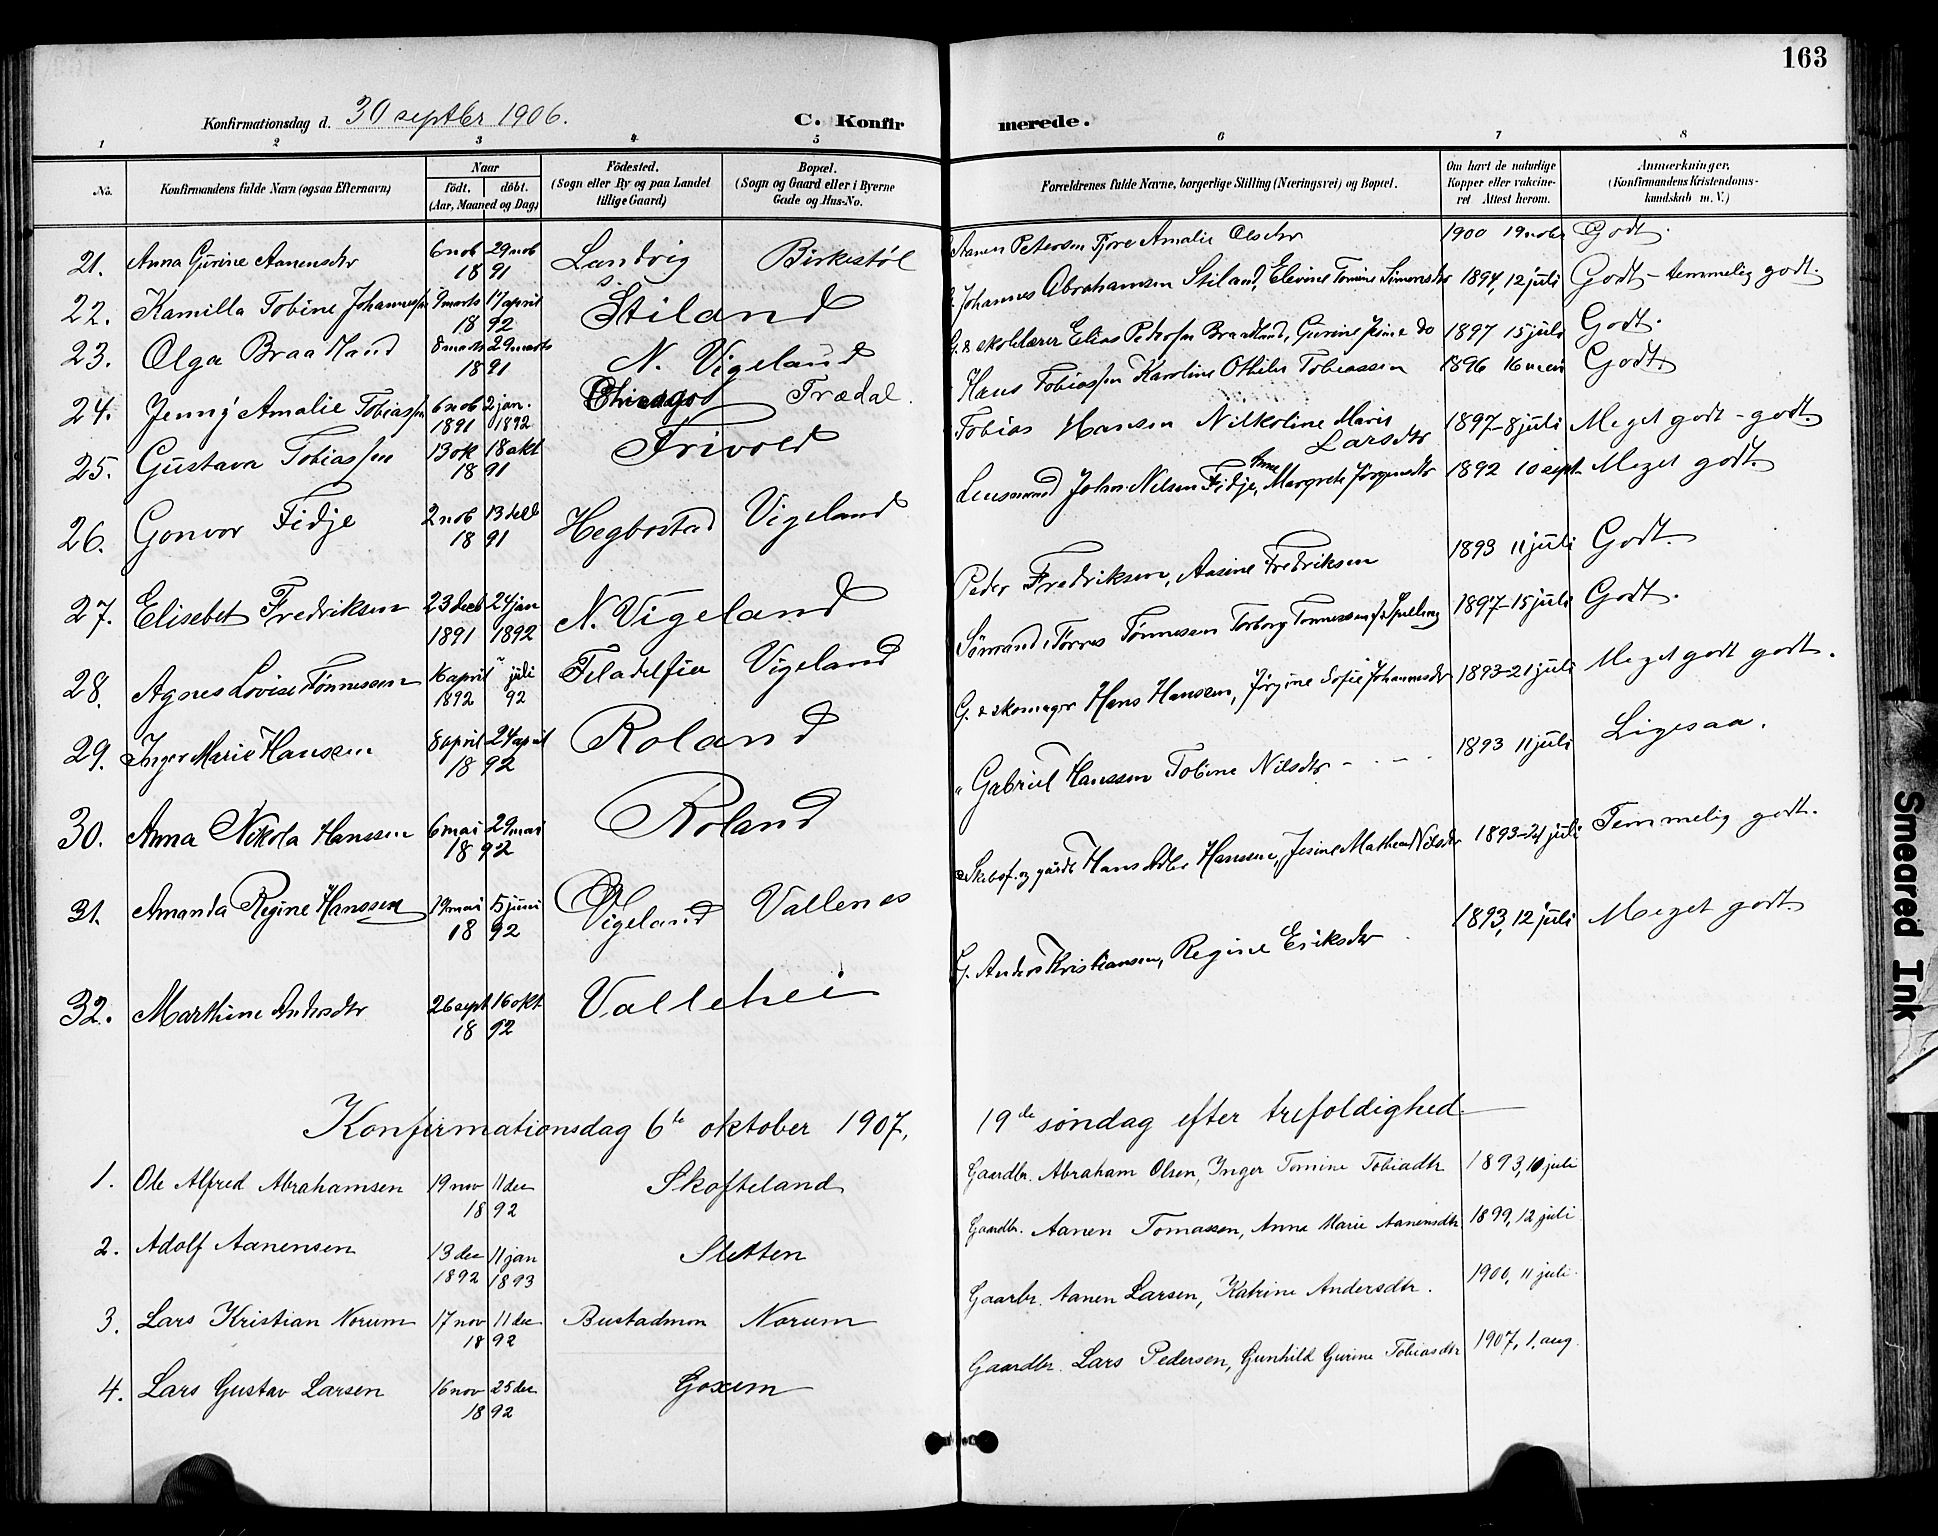 163
Konfirmationsdag d. 30 septbr 1906. C. Konfirmerede.
1 2 3 4 5 6 7 8
No. Konfirmandens fulde Navn (ogsaa Efternavn) Naar født. døbt. (Aar, Maaned og Dag) Födested. (Sogn eller By og paa Landet tillige Gaard) Bopæl. (Sogn og Gaard eller i Byerne Gade og Hus-No. Forældrenes fulde Navne, borgerlige Stilling (Næringsvei) og Bopæl. Om havt de naturlige Kopper eller vaccineret Attest herom. Anmerkninger, (Konfirmandens Kristendomskundskab m. V.)
21. Anna Gurine Aanensdtr 6 nob 29 nob 18 91 Landvig Birkestøl Aanen Petersen Tjore Amalie Olsdtr 1900 19 nobr Godt.
22. Kamilla Tobine Johannessen 9 marts 17 april 18 92 Stiland Johannes Abrahamsen Stiland, Elevine Tomine Simonsdtr 1894, 12 juli Godt - temmelig godt.
23. Olga Braatland 8 mars 29 marts 18 91 N. Vigeland G. & skolelærer Elias Pedersen Braatland, Gurine Jsine do 1897 15 juli Godt.
24. Jenny Amalie Tobiassen 6 nob 1891 2 jan. 1892 Chicago Trædal. Hans Tobiassen Karoline Othilie Tobiassen 1896 16 mai Godt.
25. Gustava Tobiassen 13 ok 18 okt 18 91 Frivold Tobias Hansen Nilkoline Maris Larsdtr 1897 - 8 juli Meget godt - godt.
26. Gonvor Fidje 2 nob 13 deb 18 91 Hegbostad Vigeland Lensmand John Nilsen Fidje, Anne Margrete Jörgensdtr 1892 10 sept. Meget godt.
27. Elisebet Fredriksen 23 decb 1891 24 jan 1892 N. Vigeland Peder Fredriksen, Aasine Fredriksen 1893 11 juli Godt.
28. Agnes Lovise Tønnessen 16 april 1892 " juli 92 Filadelfia Vigeland Sömand Törres Tönnessen Torborg Tonnessen f. Spilling 1897 - 15 juli Godt.
29. Inger Marie Hanssen 8 april 24 april 18 92 Roland G. & skomager Hans Hanssen, Jörgine Sofie Johannesdtr 1893 - 21 juli Meget godt godt.
30. Anna Nikola Hanssen 6 mai 29 mai 18 92 Roland " Gabriel Hanssen Tobine Nilsdtr - . - . 1893 11 juli Ligesaa.
31. Amanda Regine Hanssen 19 mai 5 juni 18 92 Vigeland Vallenes Skibsf. og gårdb Hans Adler Hanssen, Jesine Mathea Nilsdtr 1893 - 21 juli Temmelig godt.
32. Marthine Andersdtr 26 sept 16 okt 18 92 Vallehei G. Anders Kristiansen, Regine Eriksdtr 1893, 12 juli Meget godt.
Konfirmationsdag 6te oktober 1907, 19de søndag efter trefoldighed.
1. Ole Alfred Abrahamsen 19 nov 11 dec 18 92 Skofteland Gaardbr. Abraham Olsen, Inger Tomine Tobiasdtr 1893, 10 juli
2. Adolf Aanensen 13 dec 1892 11 jan 1893 Sletten Gaardbr. Aanen Tomassen, Anne Marie Aanensdtr 1899, 12 juli
3. Lars Kristian Norum 17 nov 11 dec 18 92 Bustadmon Norum Gaarbr. Aanen Larsen, Katrine Andersdtr. 1900, 11 juli.
4. Lars Gustav Larsen 16 nov 25 dec 18 92 Goxem Gaardbr. Lars Pedersen, Gunhild Gurine Tobiasdtr 1907, 1. aug.
Smeared Ink